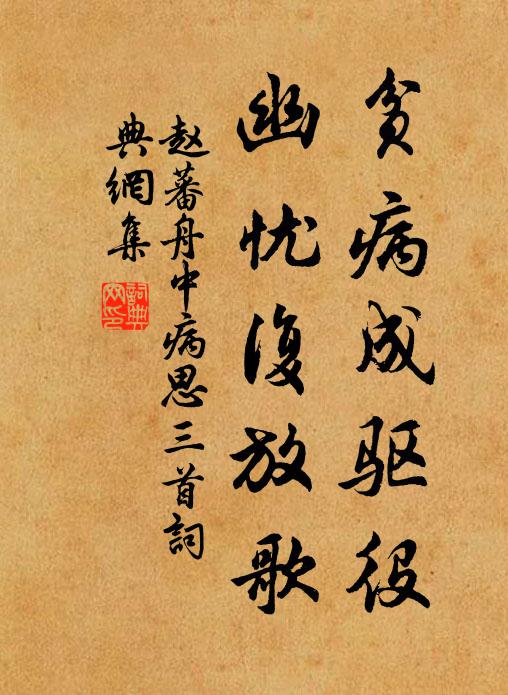 贫病成驱役
幽忧復放歌
赵蕃舟中病思三首詞
典網集
詞典網印